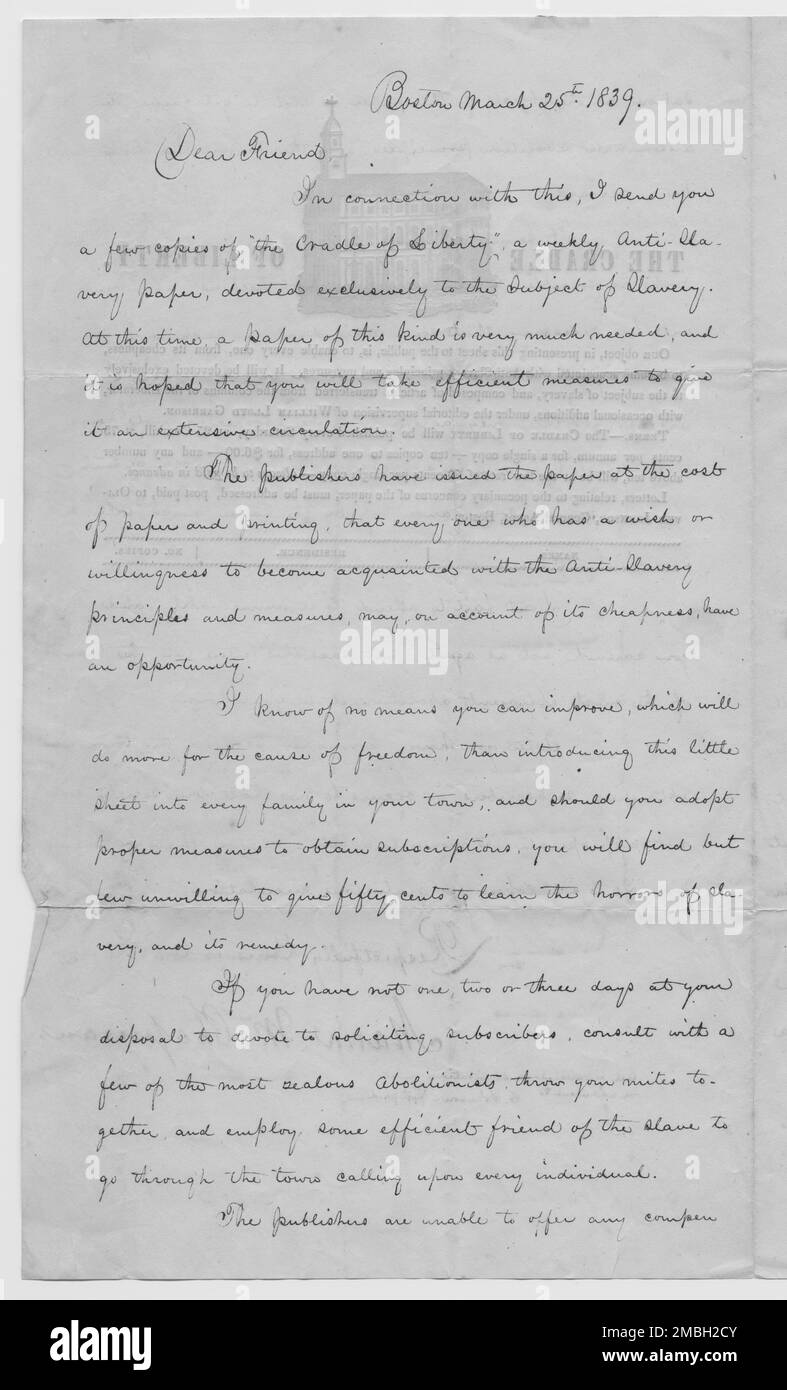 Boston March 25th 1839.
Dear Friend,
In connection with this, I send you
a few copies of "the Cradle of Liberty", a weekly Anti-Sla-
very paper, devoted exclusively to the Subject of Slavery.
At this time, a paper of this kind is very much needed, and
it is hoped that you will take efficient measures to give
it an extensive circulation.
The publishers have issued the paper at the cost
of paper and printing, that every one who has a wish or
willingness to become acquainted with the Anti-Slavery
principles and measures, may, on account of its cheapness, have
an opportunity.
I know of no means you can improve, which will
do more for the cause of freedom, than introducing this little
sheet into every family in your town, and should you adopt
proper measures to obtain subscriptions, you will find but
few unwilling to give fifty cents to learn the horrors of sla-
very, and its remedy.
If you have not one, two or three days at your
disposal to devote to soliciting subscribers, consult with a
few of the most zealous Abolitionists, throw your mites to-
gether, and employ some efficient friend of the slave to
go through the town calling upon every individual.
The publishers are unable to offer any compen
alamy
Image ID: 2MBH2CY
www.alamy.com